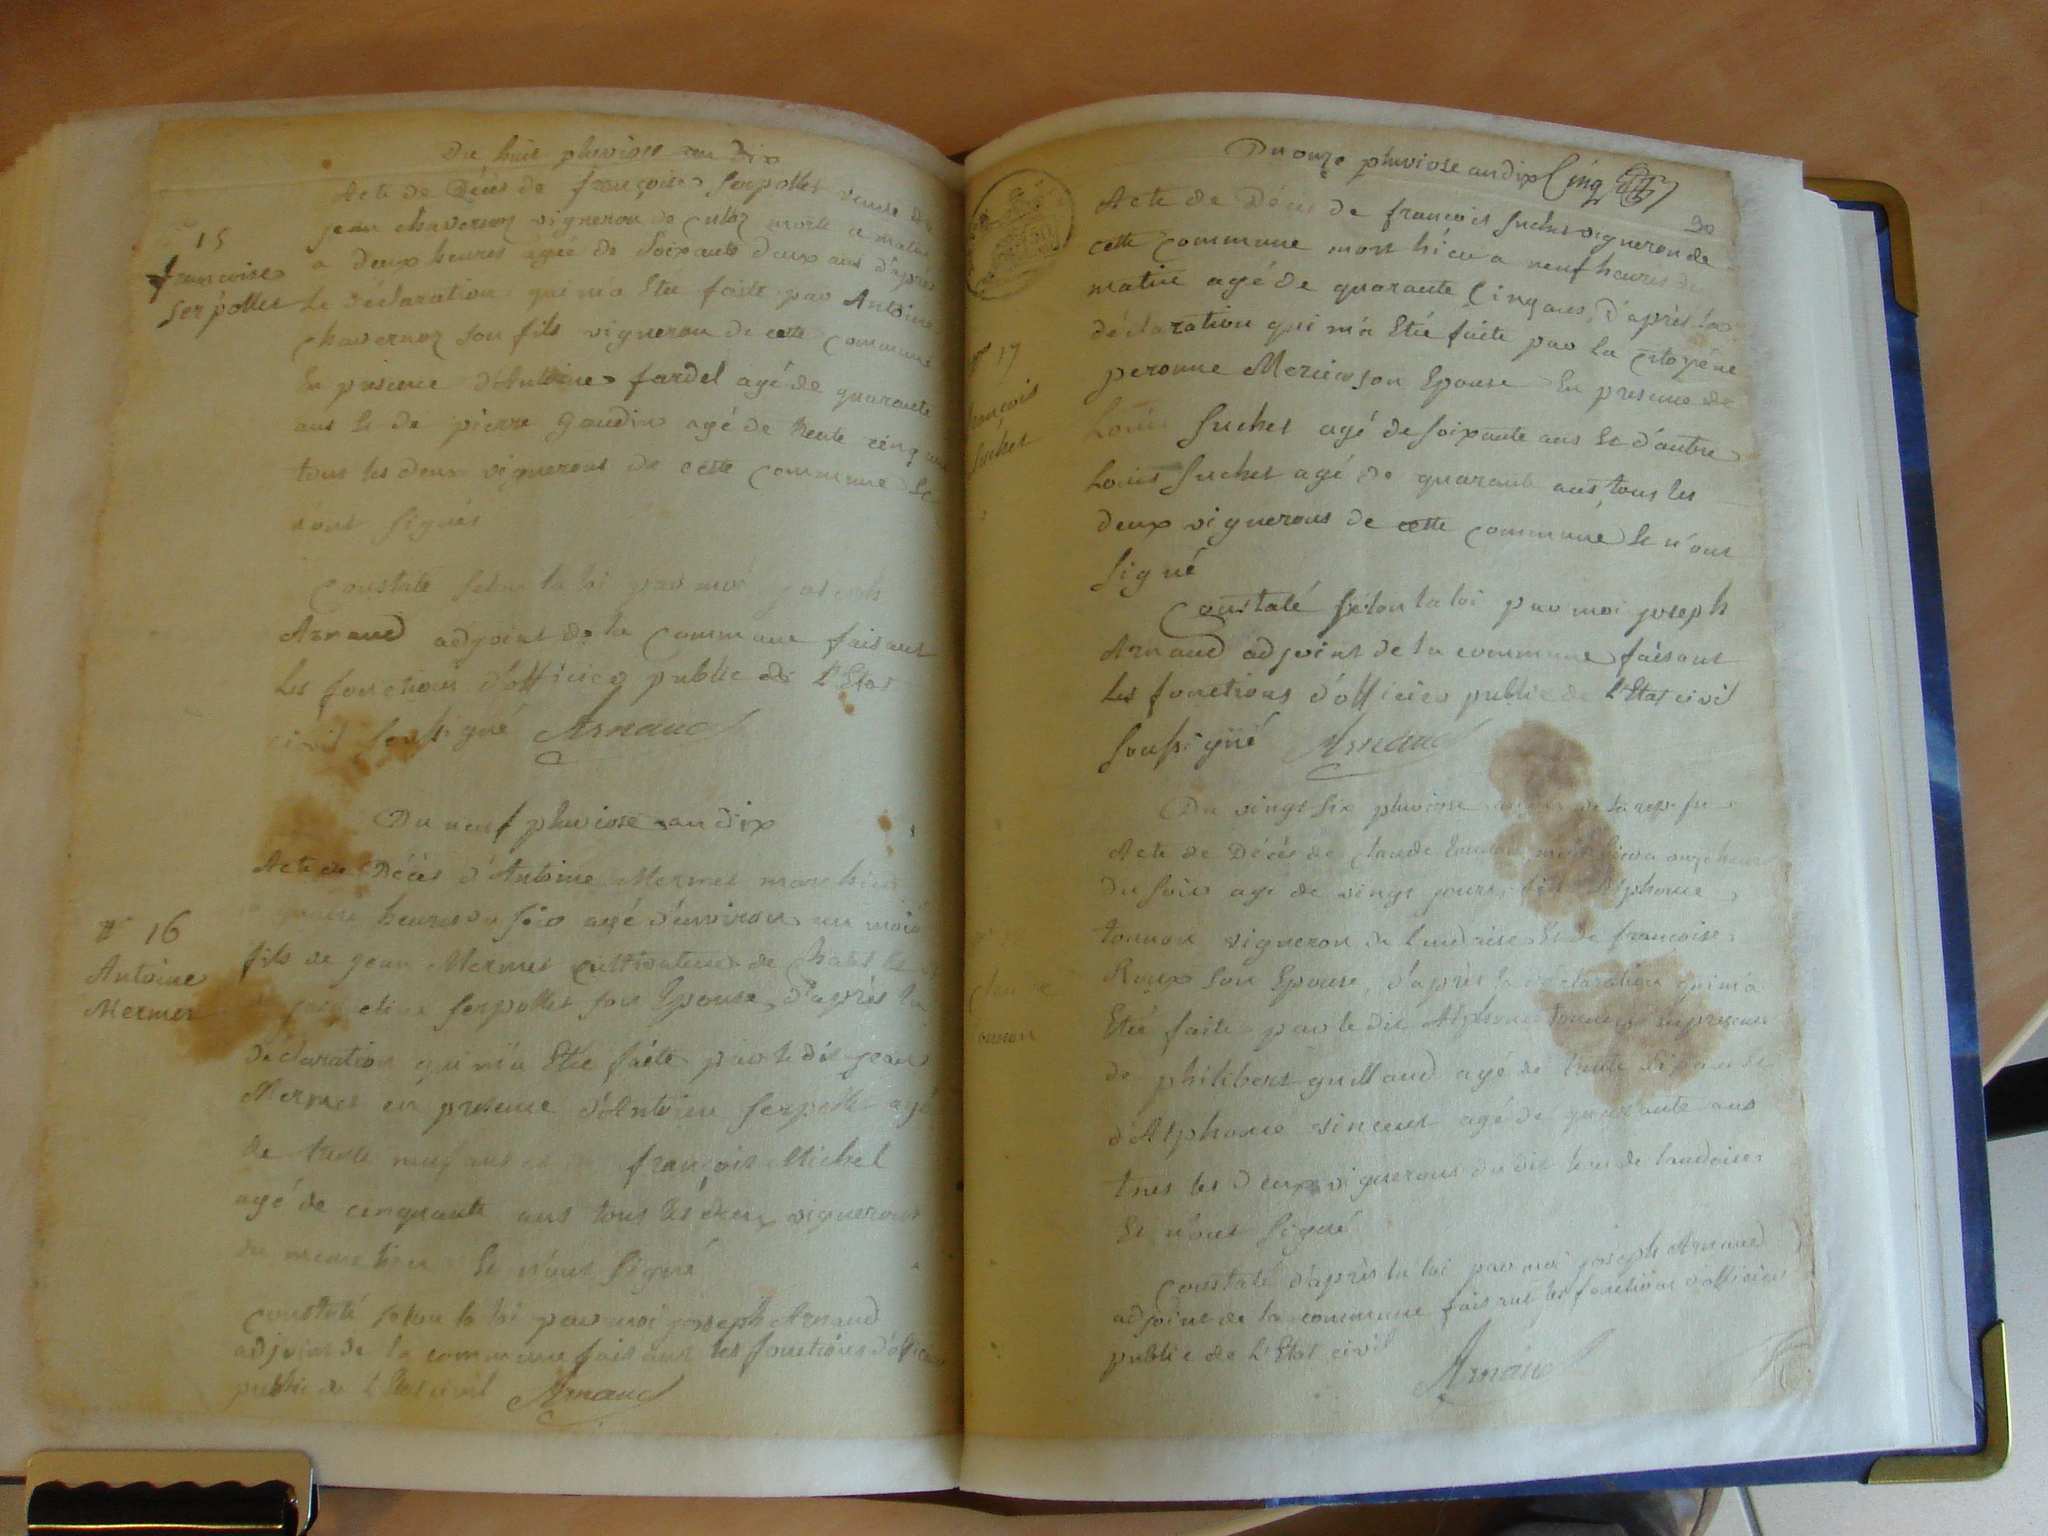 Du huit pluviose an dix
Acte de Décès de françoise Serpollet veuve de
jean chavernoz vigneron de morte a matin
a deux heures agée de Soixante deux ans d'après
La Déclaration qui m'a Etée faite par Antoine
chavernoz son fils vigneron de cette commune
En présence d'Antoine fardel agé de quarante
ans Et de pierre gaudin agé de trente cinq ans
tous les deux vignerons de cette commune Et
n'ont signés
15
françoise
Serpollet
Constaté selon la loi par moi joseph
Arnaud adjoint de la commune faisant
Les fonctions d'officier public de L'Etat
civil soussigné Arnaud
Du neuf pluviose an dix
Acte de Décès d'Antoine Mermet mort hier
a quatre heures du soir agé d'environ un mois
fils de jean Mermet cultivateur de
Serpollet son Epouse, d'après la
declaration qui m'a Etée faite par le dit jean
Mermet en présence d'Antoine Serpollet agé
de trente neuf ans et françois Michel
agé de cinquante ans tous les deux vignerons
du meme lieu Et n'ont signé
n° 16
Antoine
Mermet
Constaté selon la loi par moi joseph Arnaud
adjoint de la commune faisant les fonctions d'officier
public de L'Etat civil Arnaud
Du onze pluviose an dix Cinq
30
Acte de Décès de françois Suchet vigneron de
cette commune mort hier a neuf heures du
matin agé de quarante Cinq ans, d'après la
déclaration qui m'a Etée faite par La Citoyéne
peronne Mercier son Epouse En presence de
Louis Suchet agé de soixante ans Et d'autre
Louis Suchet agé de quarante ans tous les
deux vignerons de cette commune Et n'ont
signé
n° 17
françois
Suchet
Constaté selon la loi par moi joseph
Arnaud adjoint de la commune faisant
Les fonctions d'officier public de L'Etat civil
soussigné Arnaud
Du vingt six pluviose
Acte de Décès de claude mort hier a onze heures
du soir agé de vingt jours, fils d'Alphonse
tonnon vigneron de Et de françoise
Roux son Epouse, d'après la déclaration qui m'a
Etée faite par le dit Alphonse En presence
de philibert guillaud agé de trente
d'Alphonse vincent agé de quarante ans
tous les deux vignerons du dit lieu de
Et n'ont signé
claude
tonnon
Constaté d'après la loi par moi joseph Arnaud
adjoint de la commune faisant les fonctions d'officier
public de L'Etat civil
Arnaud